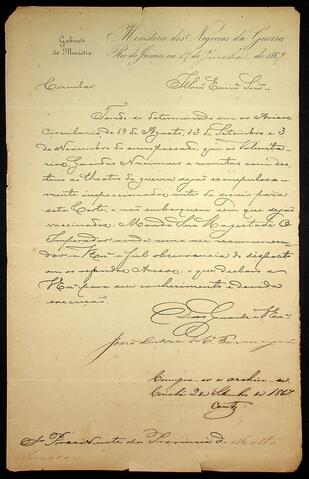 Gabinete
do Ministro
Ministerio dos Negocios da Guerra
Rio de Janeiro, em 19 de Junho de 1867
Circular
Illmo Exmo Snr
Tendo-se determinado em os Avisos
Circulares de 19 de Agosto, 13 de Setembro e 3
de Novembro do anno passado, que os Voluntá-
rios, Guardas Nacionaes e recrutas com des-
tino ao theatro da guerra sejão escrupulosa-
mente inspeccionados antes de seguir para
esta Corte, e não embarquem sem que sejão
vaccinados: Manda Sua Magestade O
Imperador ainda uma vez recommen-
dar a V Exa a fiel observancia do disposto
em os referidos Avisos, o que declaro a
V Exa para seu conhecimento e devida
execução.
Deos Guarde a V Exa
João Lustosa da Ca Paranaguá
Cumpra-se e archive-se.
Cuiabá 2 de Setembro de 1867
Snr Presidente da Provincia de Matto
Grosso